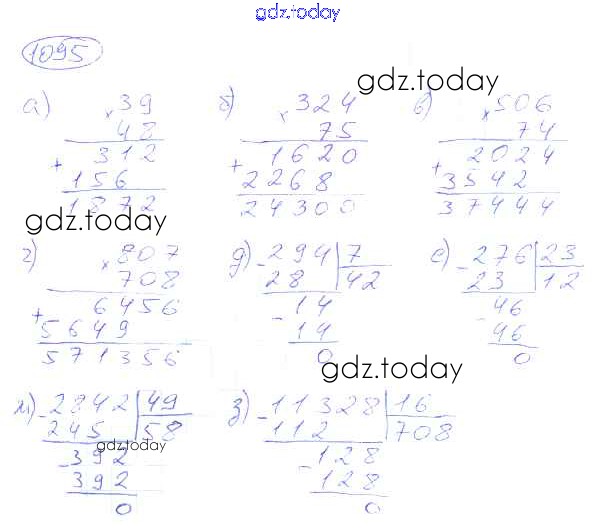 gdz.today
1095
gdz.today
а) × 39 б) × 324 в) × 506
48 75 74
+ 312 + 1620 + 2024
156 2268 3542
1872 24300 37444
gdz.today
г) × 807 д) - 294 7 е) - 276 23
708 28 42 23 12
+ 6456 - 14 - 46
5649 14 46
571356 0 0
gdz.today
ж) - 2842 49 з) - 11328 16
245 58 112 708
gdz.today
- 392 - 128
392 128
0 0